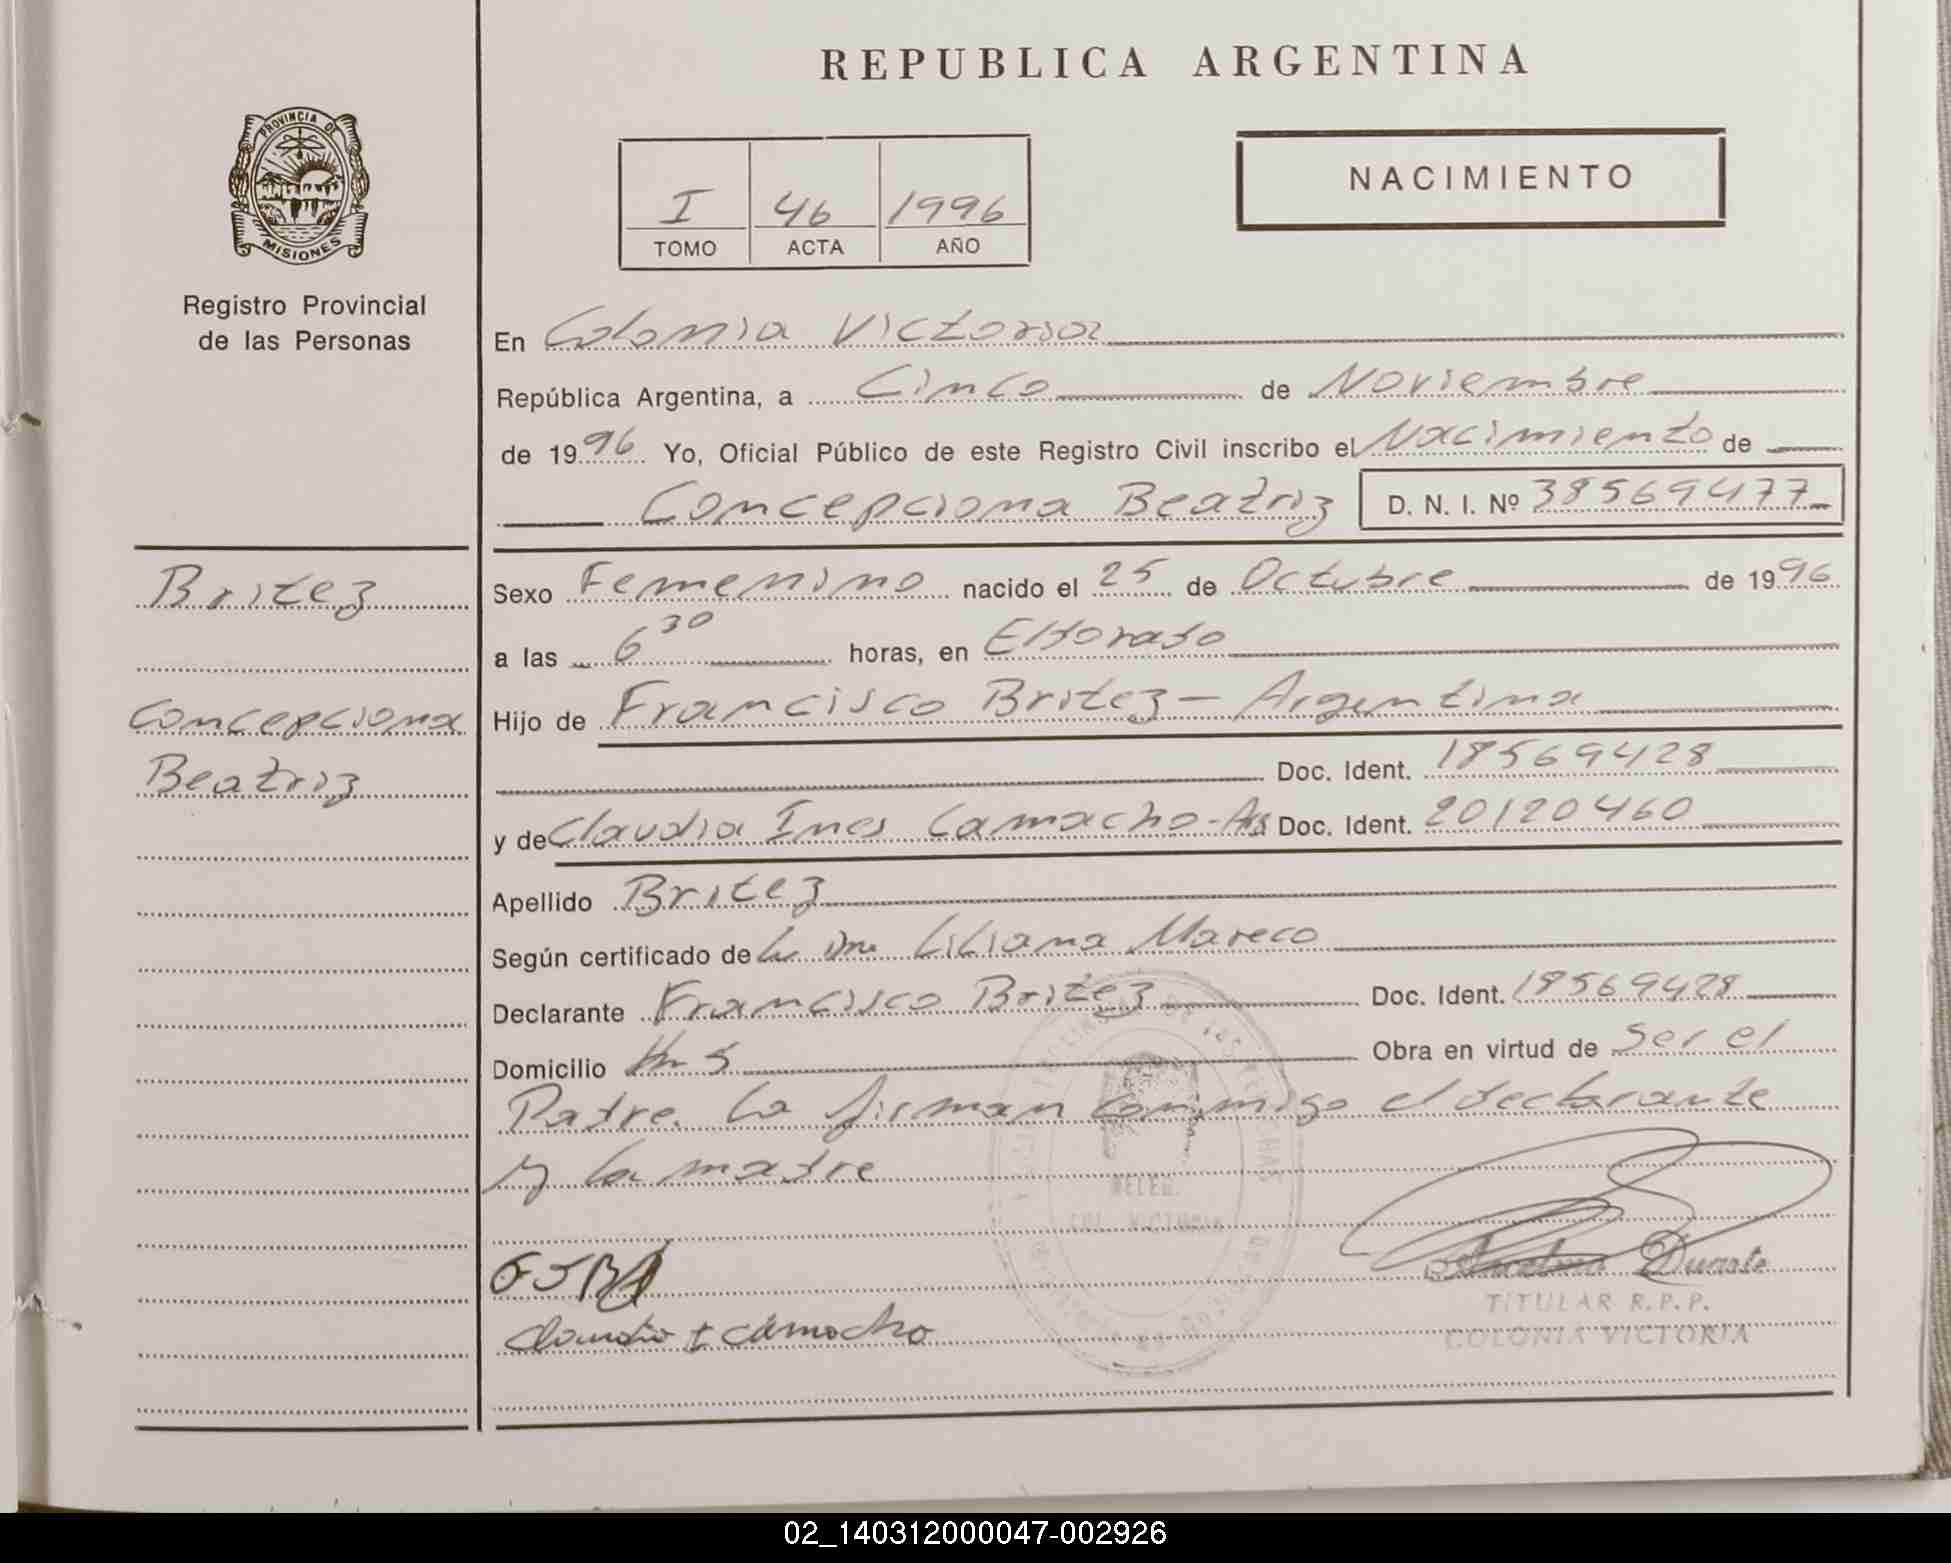 REPUBLICA ARGENTINA
PROVINCIA DE
MISIONES
Registro Provincial
de las Personas
I 46 1996
TOMO ACTA AÑO
NACIMIENTO
En Colonia Victoria
República Argentina, a Cinco de Noviembre
de 1996 Yo, Oficial Público de este Registro Civil inscribo el Nacimiento de
Concepciona Beatriz D. N. I. Nº 38569477
Britez
Concepciona
Beatriz
Sexo Femenino nacido el 25 de Octubre de 1996
a las 6 30 horas, en Eldorado
Hijo de Francisco Britez - Argentina
Doc. Ident. 18569428
y de Claudia Ines Camacho - Arg Doc. Ident. 20120460
Apellido Britez
Según certificado de la Dra Liliana Mareco
Declarante Francisco Britez Doc. Ident. 18569428
Domicilio Km 5 Obra en virtud de Ser el
Padre. La firman conmigo el declarante
y la madre
Claudia I Camacho
DELEG.
COL. VICTORIA
Duarte
TITULAR R.P.P.
COLONIA VICTORIA
02_140312000047-002926